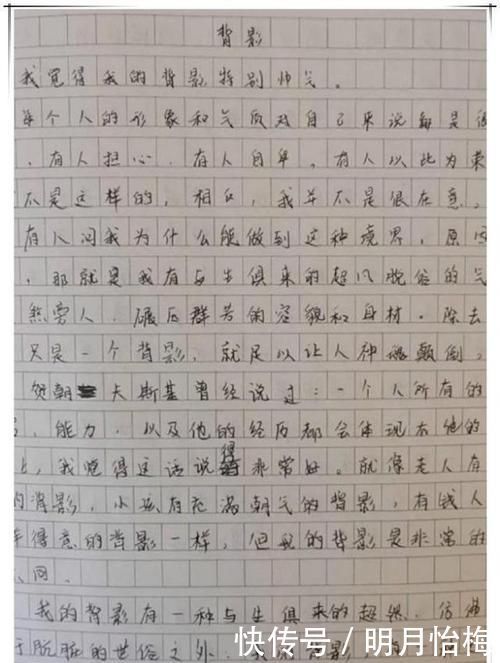 背影
我觉得我的背影特别帅气。
每个人的形象和气质对自己来说每是很
，有人担心，有人自卑，有人以此为荣
不是这样的，相反，我并不是很在意。
有人问我为什么能做到这种境界，原因
，那就是我有与生俱来的超凡脱俗的气
煞旁人，碾压群芳的容貌和身材。除去
只是一个背影，就足以让人神魂颠倒，
贺朝卡斯基曾经说过：一个人所有的
，能力，以及他的经历都会体现在他的
上，我觉得这话说得非常好。就像老人有
的背影，小孩有充满朝气的背影，有钱人
得意的背影一样，但我的背影是非常的
同。
我的背影有一种与生俱来的超然，仿佛
于肮脏的世俗之外
快传号／明月怡梅